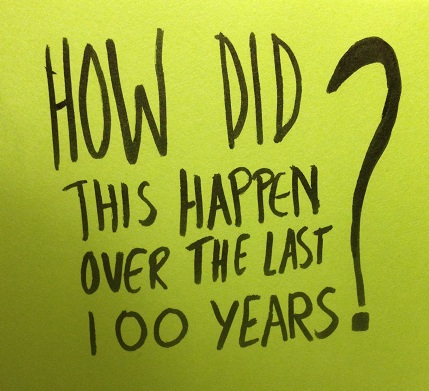 HOW DID
THIS HAPPEN
OVER THE LAST
100 YEARS?